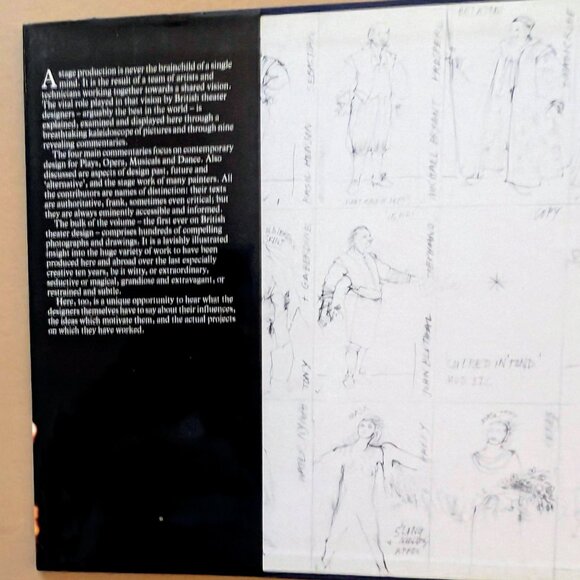 A stage production is never the brainchild of a single
mind. It is the result of a team of artists and
technicians working together towards a shared vision.
The vital role played in that vision by British theater
designers – arguably the best in the world – is
explained, examined and displayed here through a
breathtaking kaleidoscope of pictures and through nine
revealing commentaries.
The four main commentaries focus on contemporary
design for Plays, Opera, Musicals and Dance. Also
discussed are aspects of design past, future and
‘alternative’, and the stage work of many painters. All
the contributors are names of distinction: their texts
are authoritative, frank, sometimes even critical; but
they are always eminently accessible and informed.
The bulk of the volume – the first ever on British
theater design – comprises hundreds of compelling
photographs and drawings. It is a lavishly illustrated
insight into the huge variety of work to have been
produced here and abroad over the last especially
creative ten years, be it witty, or extraordinary,
seductive or magical, grandiose and extravagant, or
restrained and subtle.
Here, too, is a unique opportunity to hear what the
designers themselves have to say about their influences,
the ideas which motivate them, and the actual projects
on which they have worked.
MICHAEL
TONY
HARRY
SLING